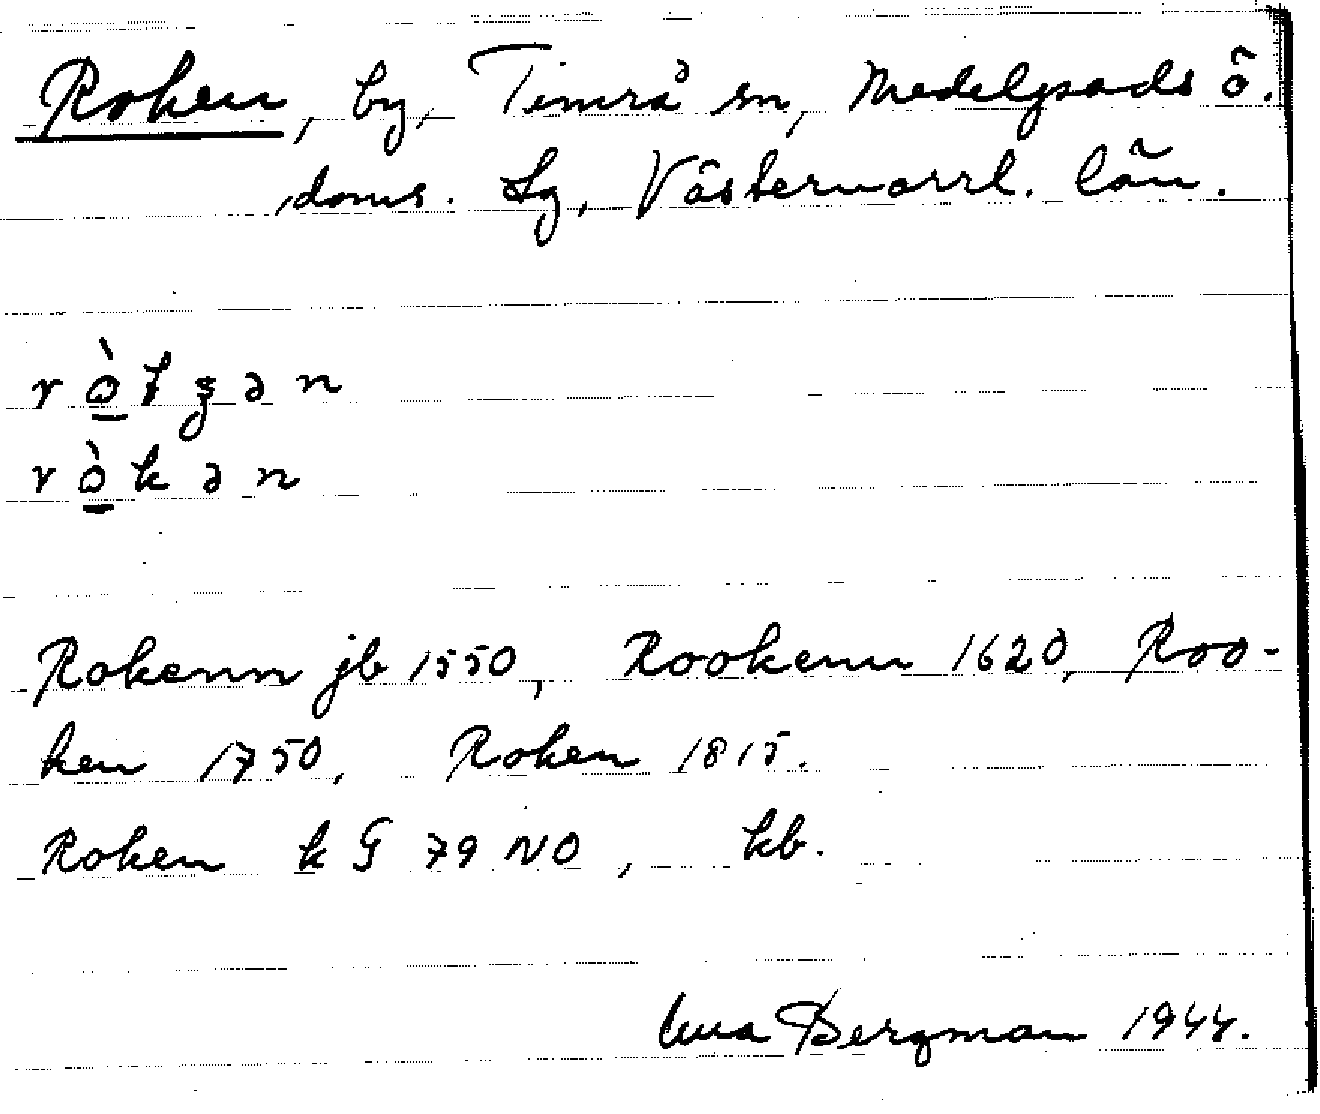 Roken, by, Timrå sn, Medelpads ö.
doms. Lg, Västernorrl. län.
rò̱tʂən
rò̱kən
Rokenn jb 1550, Rookenn 1620, Roo-
ken 1750, Roken 1815.
Roken k G 79 NO, kb.
Bergman 1944.